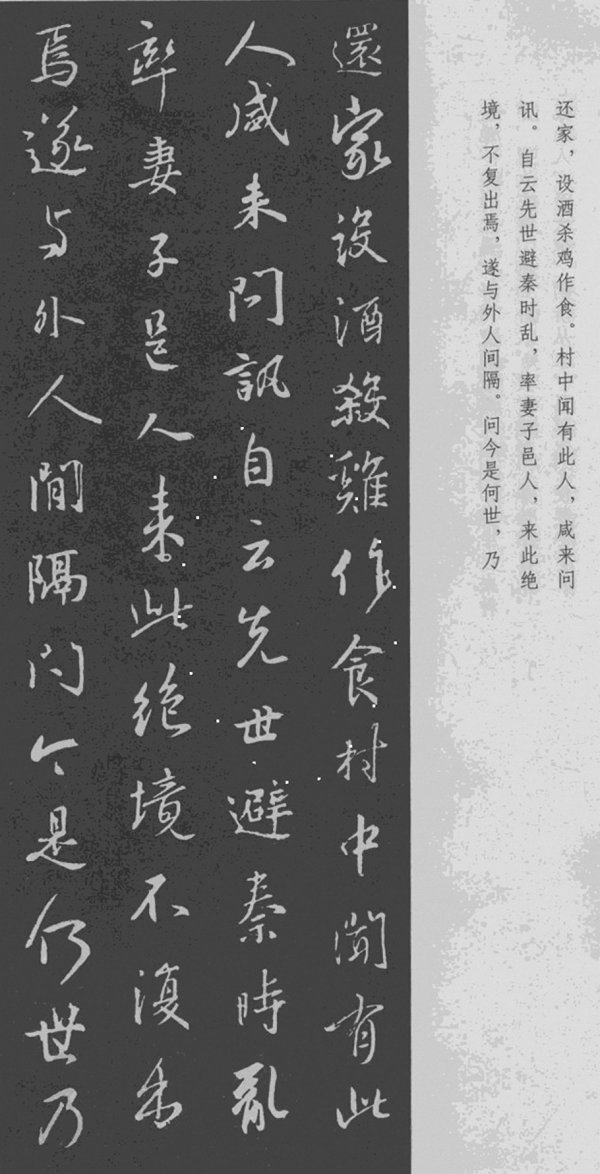 还家，设酒杀鸡作食。村中闻有此人，咸来问
讯。自云先世避秦时乱，率妻子邑人，来此绝
境，不复出焉，遂与外人间隔。问今是何世，乃
還家設酒殺雞作食村中聞有此
人咸来問訊自云先世避秦時亂
率妻子邑人来此絶境不復出
焉遂与外人間隔問今是何世乃